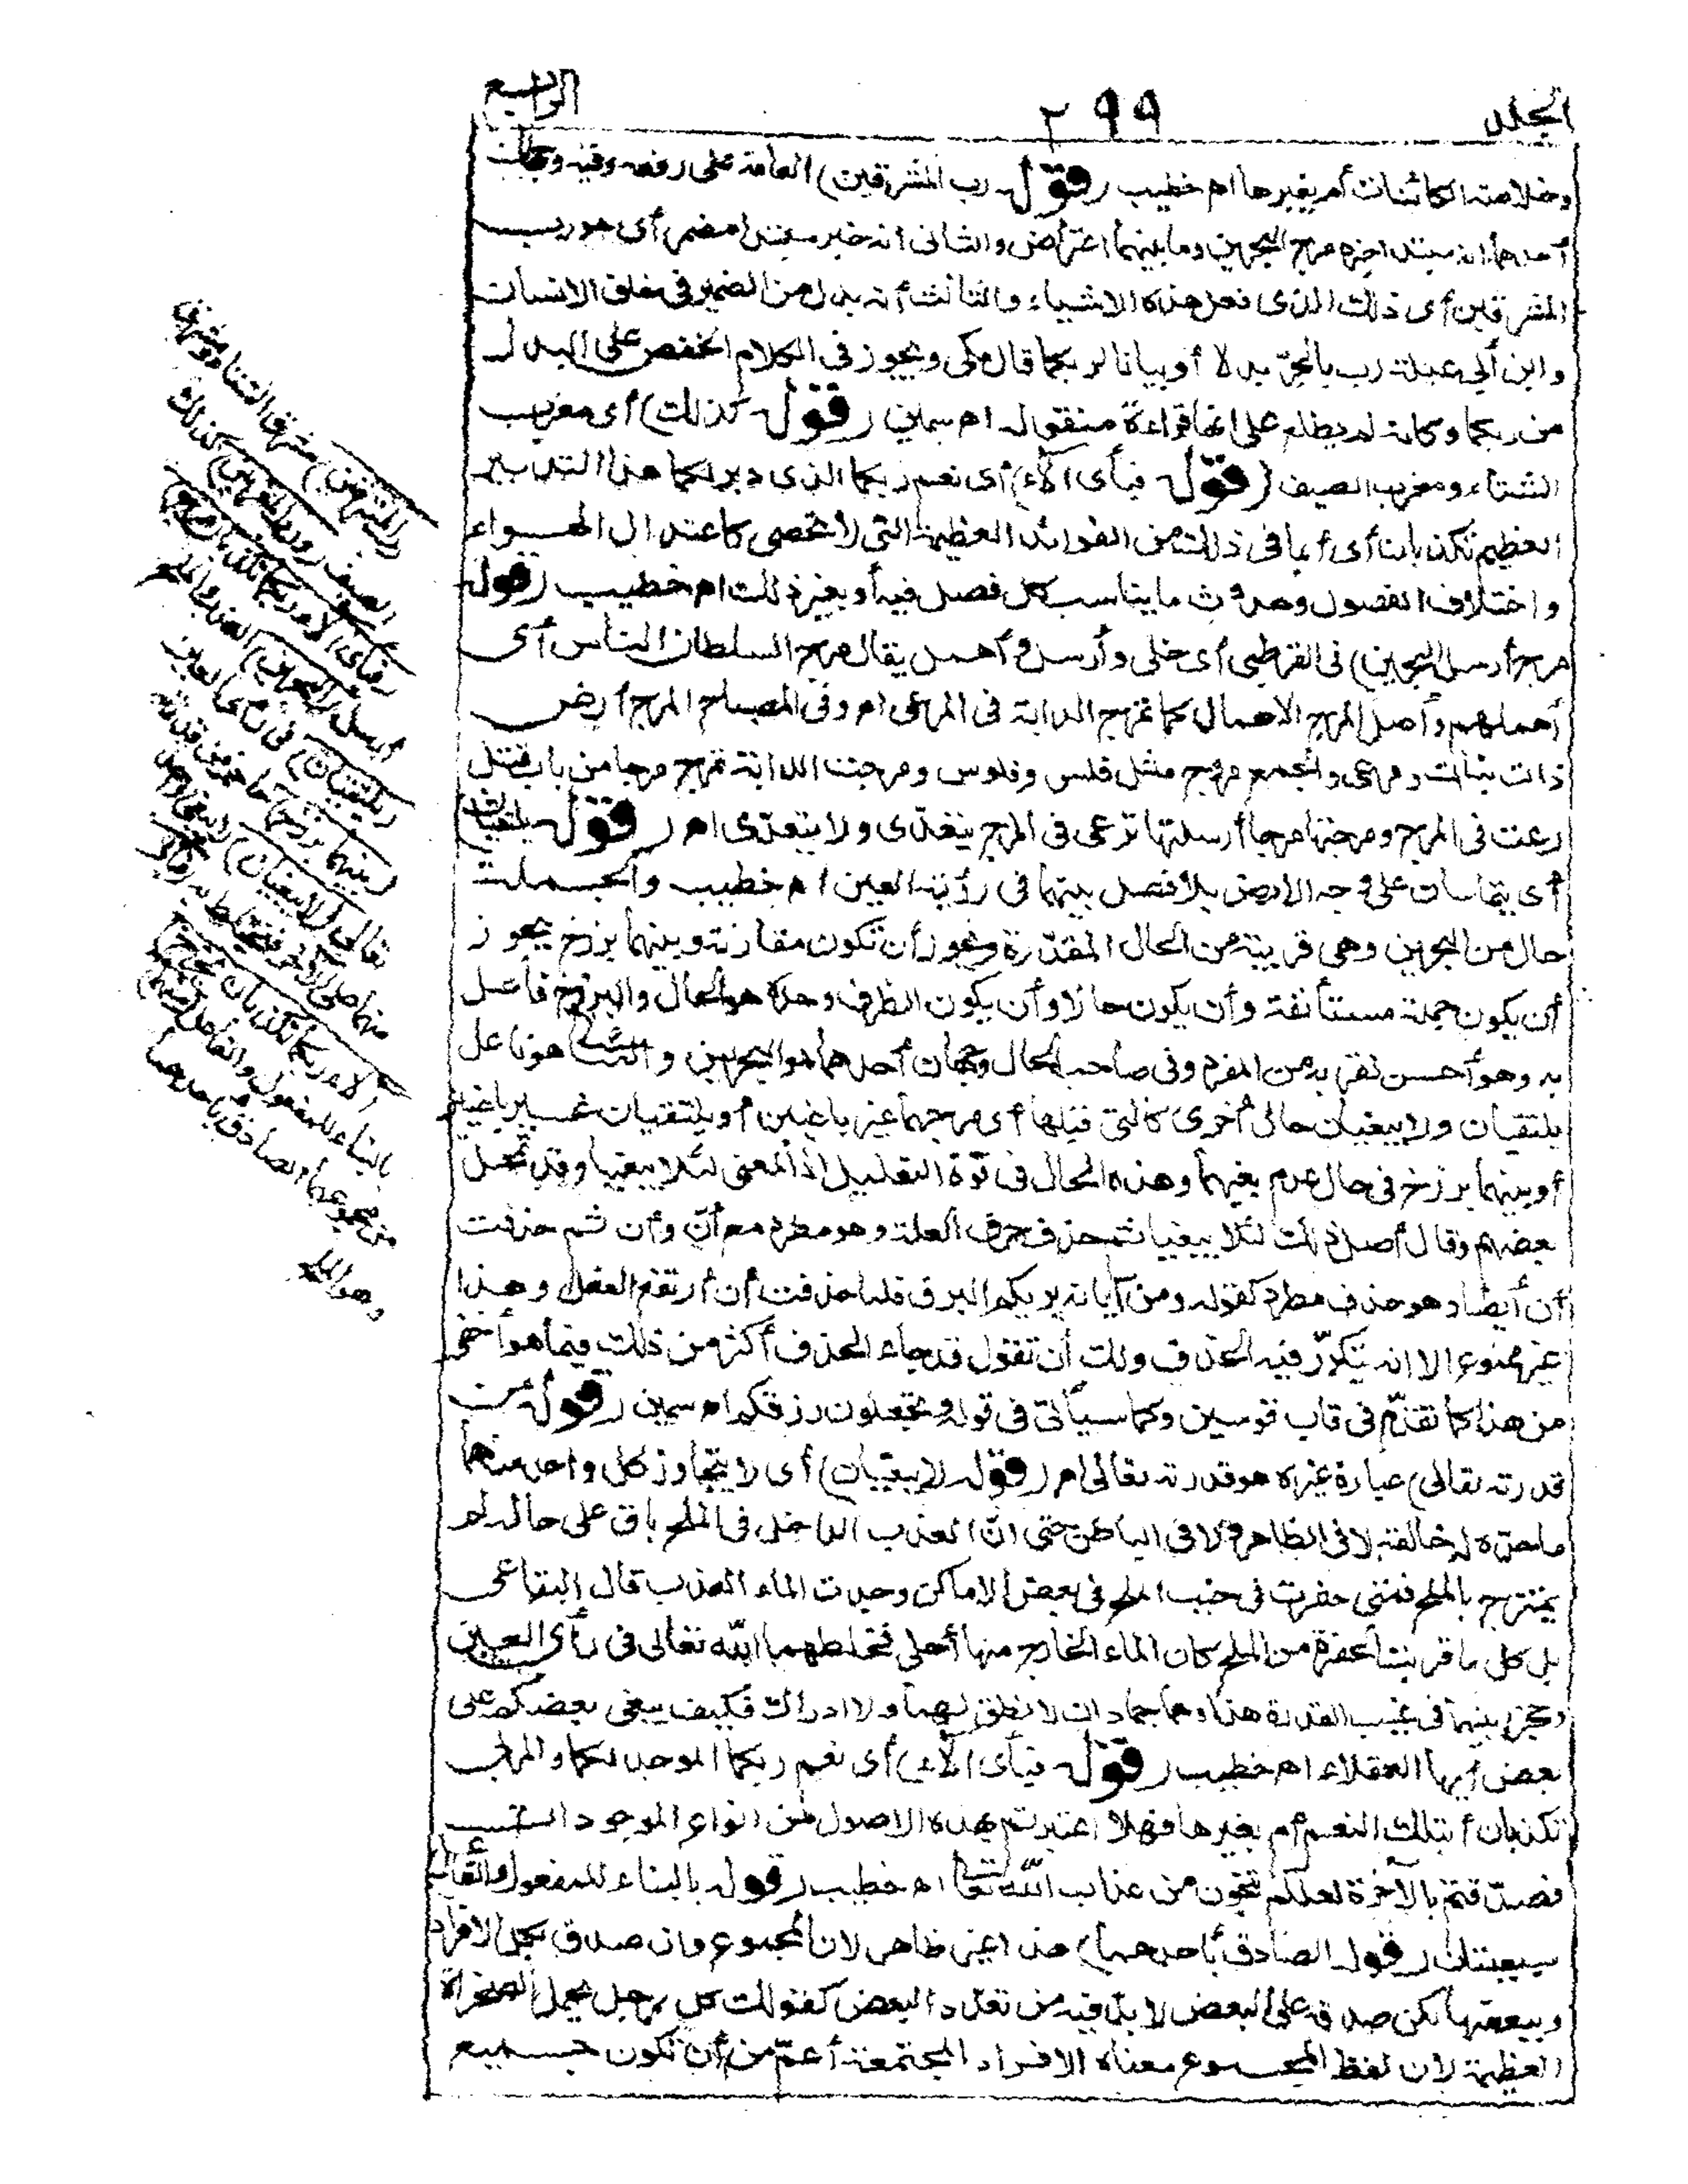 الجلد
٢٩٩
الرابع
وخلاصة الكائنات أم بغيرها اه خطيب (قوله رب المشرقين) العامة على رفعه وفيه وجهان
أحدهما انه مبتدا خبره مرج البحرين وما بينهما اعتراض والثانى أنه خبر مبتدا مضمر أى هو رب
المشرقين أى ذلك الذى فعل هذه الاشياء والثالث أنه بدل من الضمير فى خلق الانسان
وابن أبى عبلة رب بالجرّ بدلا أو بيانا لربكما قال مكى ويجوز فى الكلام الخفض على البدل
من ربكما وكانه لم يطلع على انها قراءة منقولة اه سمين (قوله كذلك) أى مغرب
الشتاء ومغرب الصيف (قوله فبأى آلاء) أى نعم ربكما الذى دبر لكما هذا التدبير
العظيم تكذبان أى أبما فى ذلك من الفوائد العظيمة التى لا تحصى كاعتدال الهواء
واختلاف الفصول وحدوث ما يناسب كل فصل فيه أو بغير ذلك اه خطيب (قوله
مرج أرسل البحرين) فى القرطبى أى خلى وأرسل وأهمل يقال مرج السلطان الناس أى
أهملهم وأصل المرج الاهمال كما تمرج الدابة فى المرعى اه وفى المصباح المرج أرض
ذات نبات ومرعى والجمع مروج مثل فلس وفلوس ومرجت الدابة تمرج مرجا من باب قتل
رعت فى المرج ومرجتها مرجا أرسلتها ترعى فى المرج يتعدّى ولا يتعدّى اه (قوله يلتقيان)
أى يتماسان على وجه الارض بلا فصل بينهما فى رؤية العين اه خطيب والجملة
حال من البحرين وهى قريبة من الحال المقدّرة ويجوز أن تكون مقارنة وبينهما برزخ يجوز
أن يكون جملة مستأنفة وأن يكون حالا وأن يكون الظرف وحده هو الحال والبرزخ فاعل
به وهو أحسن لقربه من المفرد وفى صاحب الحال وجهان أحدهما هو البحرين والثانى هو فاعل
يلتقيان ولا يبغيان حال أخرى كالتى قبلها أى مرجهما غير باغيين أو يلتقيان غير باغيين
أو بينهما برزخ فى حال عدم بغيهما وهذه الحال فى قوّة التعليل اذ المعنى لئلا يبغيا وقد تمحل
بعضهم وقال أصل ذلك لئلا يبغيا ثم حذف حرف العلة وهو مطرد مع أنّ وأن ثم حذفت
أن أيضا وهو حذف مطرد كقوله ومن آياته يريكم البرق فلما حذفت أن ارتفع الفعل وهذا
غير ممنوع الا انه يتكرّر فيه الحذف ولك أن تقول قد جاء الحذف أكثر من ذلك فيما هو أخفى
من هذا كما تقدّم فى قاب قوسين وكما سيأتى فى قوله وتجعلون رزقكم اه سمين (قوله من
قدرته تعالى) عبارة غيره هو قدرته تعالى اه (قوله لا يبغيان) أى لا يتجاوز كل واحد منهما
ما حدّه له خالقه لا فى الظاهر ولا فى الباطن حتى انّ العذب الداخل فى الملح باق على حاله لم
يمتزج بالملح فمتى حفرت فى جنب الملح فى بعض الاماكن وجدت الماء العذب قال البقاعى
بل كل ما قربت الحفرة من الملح كان الماء الخارج منها أحلى فخلطهما الله تعالى فى رأى العين
وحجز بينهما فى غيب القدرة هذا وهما جمادان لا نطق لهما ولا ادراك فكيف يبغى بعضكم على
بعض أيها العقلاء اه خطيب (قوله فبأى آلاء) أى نعم ربكما الموجد لكما والمربى
تكذبان أبتلك النعم أم بغيرها فهلا اعتبرتم بهذه الاصول من انواع الموجودات
فصدّقتم بالآخرة لعلكم تنجون من عذاب الله تعالى اه خطيب (قوله بالبناء للمفعول والفاعل)
سبعيتان (قوله الصادق بأحدهما) هذا غير ظاهر لان المجموع وان صدق بكل الافراد
وببعضها لكن صدقه على البعض لا بدّ فيه من تعدّد البعض كقولك كل رجل يحمل الصخرة
العظيمة لان لفظ المجموع معناه الافراد المجتمعة أعمّ من أن تكون جميع
(المشرقين) مشرق الشتاء ومشرق
الصيف (ورب المغربين) كذلك
(فبأى آلاء ربكما تكذبان مرج)
أرسل (البحرين) العذب والملح
(يلتقيان) فى رأى العين
(بينهما برزخ) حاجز من قدرته
تعالى (لا يبغيان) لا يبغى واحد
منهما على الآخر فيختلط به (فبأى
آلاء ربكما تكذبان يخرج)
بالبناء للمفعول والفاعل (منهما)
من مجموعهما الصادق بأحدهما
وهو الملح